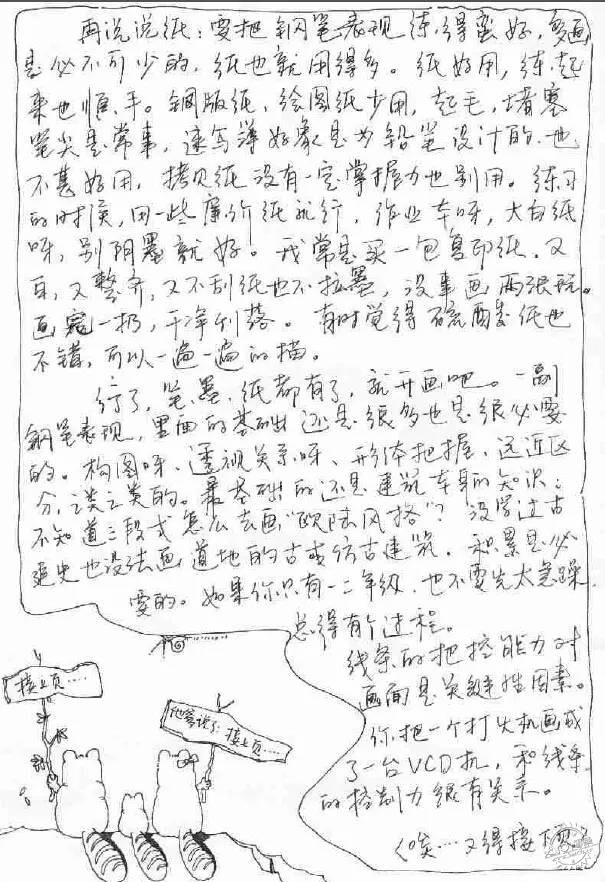 再说说纸：要把钢笔表现练得蛮好，多画
是必不可少的，纸也就用得多。纸好用，练起
来也顺手。铜版纸、绘图纸少用，起毛，堵塞
笔尖是常事，速写薄好象是为铅笔设计的，也
不甚好用，拷贝纸没有一定掌握力也别用。练习
的时候，用一些廉价纸就行，作业本呀，大白纸
呀，别阴墨就好。我常是买一包复印纸，又
白，又整齐，又不刮纸也不拉墨，没事画两张玩。
画完一扔，干净利落。有时觉得硫酸纸也
不错，可以一遍一遍的描。
行了，笔、墨、纸都有了，就开画吧。一副
钢笔表现，里面的基础还是很多也是很必要
的。构图呀、透视关系呀、形体把握、远近区
分，之类之类的。最基础的还是建筑本身的知识：
不知道三段式怎么去画“欧陆风格”？没学过古
建史也没法画道地的古或仿古建筑，积累是必
要的。如果你只有一二年级，也不要先太急躁，
总得有个过程。
线条的把控能力对
画面是关键性因素。
你把一个打火机画成
了一台VCD机，和线条
的控制力很有关系。
（唉…又得接下页）
接上页……
他拿说了：接上页…